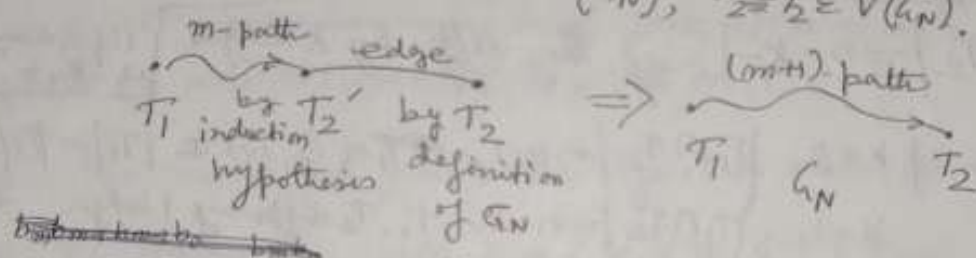 2 = b2 ∈ V(GN).
m-path edge
T1 by induction hypothesis T2' by definition of GN T2
⇒
(m+1) path
T1 GN T2